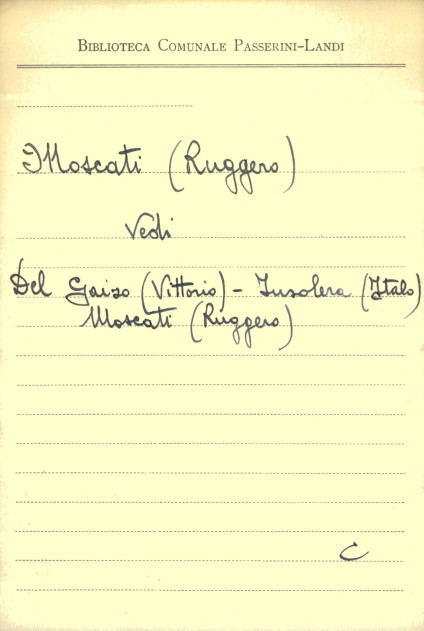 BIBLIOTECA COMUNALE PASSERINI-LANDI
Moscati (Ruggero)
Vedi
Del Gaizo (Vittorio) - Insolera (Italo)
Moscati (Ruggero)
C